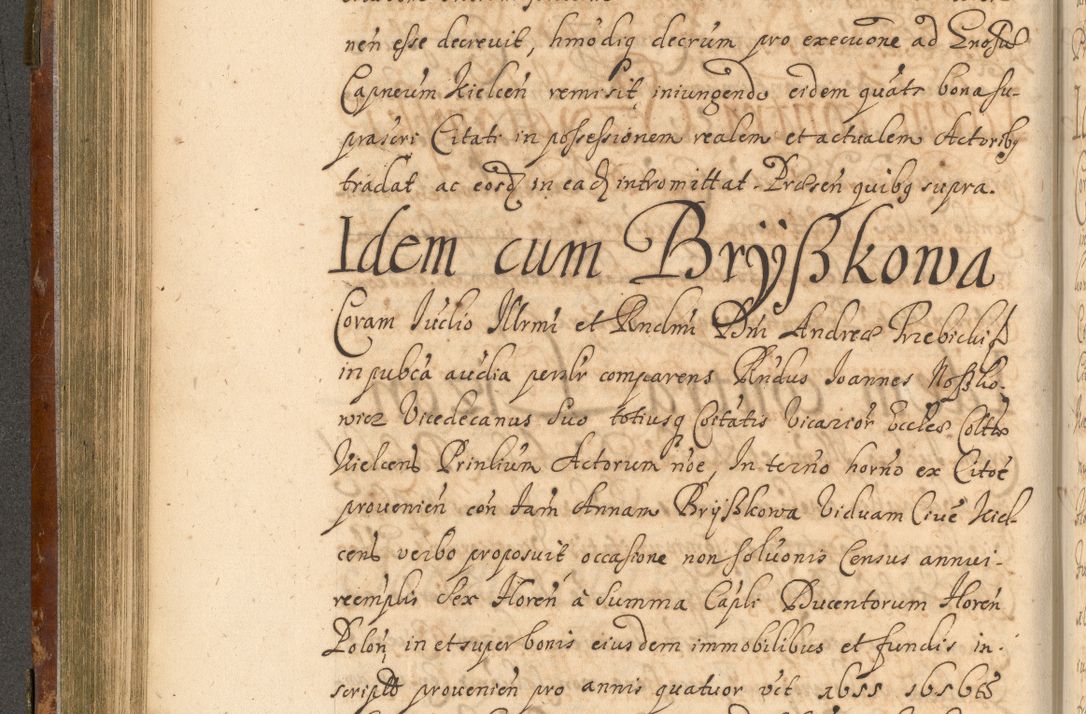 neñ esse decrevit, hmõdiq decrum pro execuõne ad Gnosũ
Capneum Kielceñ remisit, iniungendo eidem quãts bona su-
prascri Citati in possessionem realem et actualem Actoribq
tradat ac eosdem in eadem intromittat. Præsen quibq supra.
Idem cum Bryÿßkowa
Coram Iudio Illrmi et Rndmi Dñi Andreæ Trzebicki
in pubca audia persłr comparens Rndus Ioannes Noßko-
wicz Vicedecanus suo totiusq Cõitatis Vicarior Eccles Coltæ
Kielcens Prinlium Actorum nõe, In termõ horno ex Citõe
proveniẽn con Fam Annam Bryßkowa Viduam Civẽ Kiel-
cens verbo proposuit, occasione non soluõnis Census annui
reemplis Sex Floreñ à summa Capli Ducentorum Floreñ
Poloñ in et super bonis eiusdem immobilibus et fundis in-
script proveniẽn pro annis quatuor vĩt 1655 1656ts